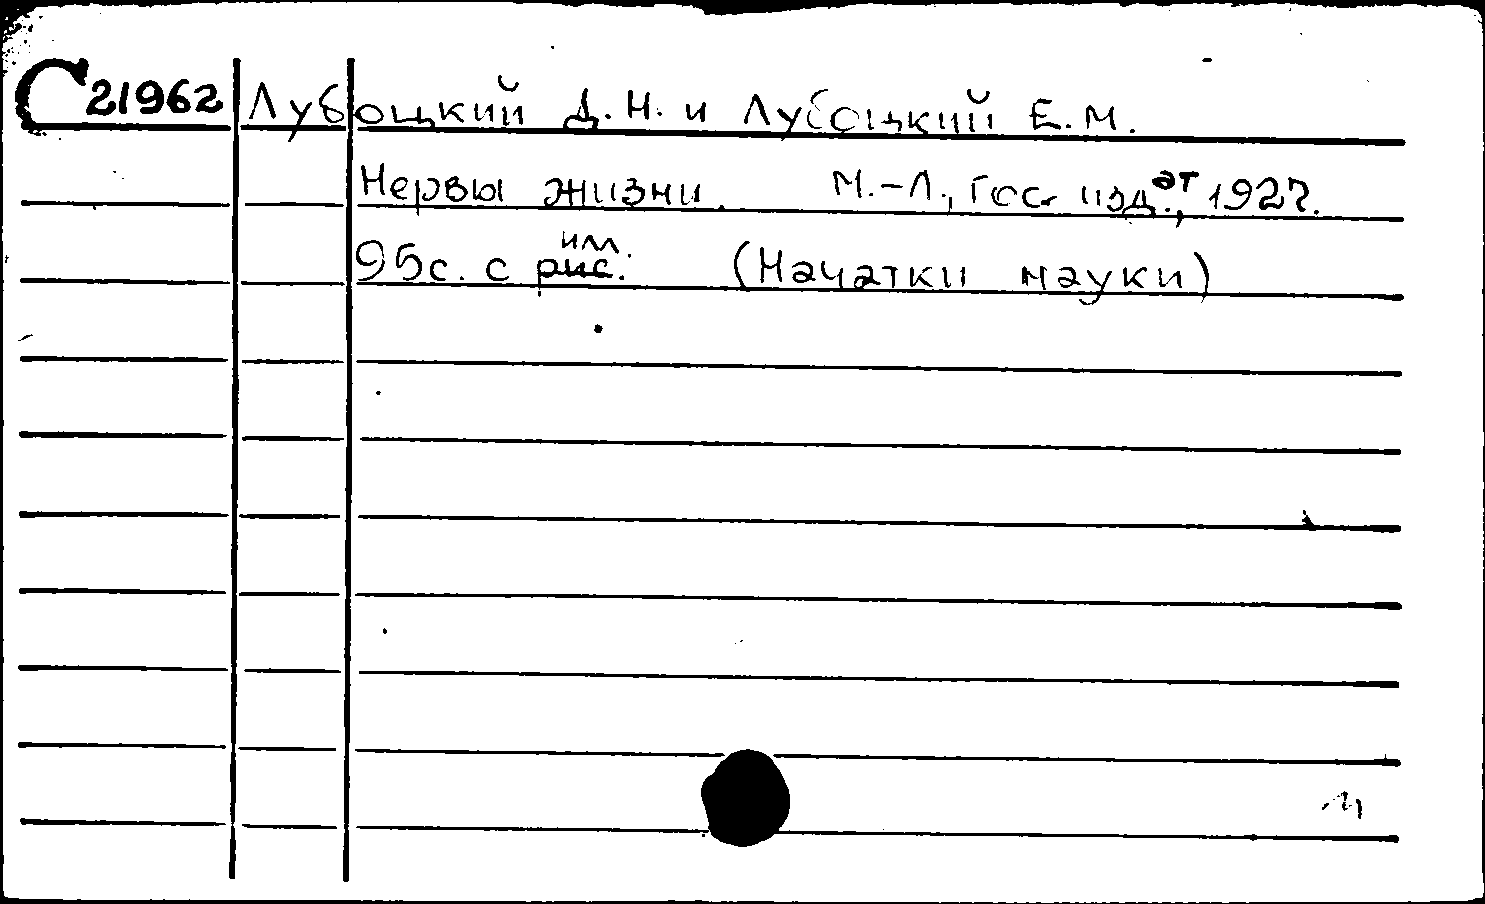 С 21962 Лубоцкий Д. Н. и Лубоцкий Е. М.
Нервы жизни. М.-Л., Гос. изд.ат, 1927.
95с. с рис. илл. (Начатки науки)